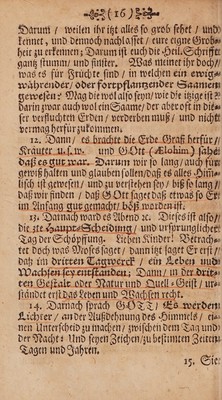 (16)
Darum / weilen ihr itzt alles so grob sehet / und
kennet / und dennoch nachläffet / eure eigne Grob-
heit zu erkennen; Darum ist auch die Heil. Schrifft
gantz stumm / und finster. Was meinet ihr doch/
was es für Früchte sind / in welchen ein ewig-
währender/ oder fortpflantzender Saamen
gewesen? Mag die wol also seyn/wie die itzige ist?
darin zwar auch wol ein Saame/ der aber oft in die-
ser verfluchten Erden / verderben muß / und nicht
vermag herfür zukommen.
12. Dann / es brachte die Erde Graß herfür/
Kräuter u.s.w. und GOtt (Ælohim) sahe
daß es gut war. Darum wir so lang/ auch für
gewiß halten und glauben sollen/daß es alles Him-
lisch ist gewesen / und zu verstehen sey / biß so lang/
daß wir finden / daß GOtt saget daß etwas so Er
im Anfang gut gemacht/ böß worden ist.
13. Darnach ward es Abend ꝛc. Dieses ist also/
die 3te Haupt-Scheidung / und ursprünglicher
Tag der Schöpffung. Lieben Kinder! Betrach-
tet doch was Moses saget / dann itzt saget Er erst/
daß im dritten Tagwerck / ein Leben und
Wachsen sey entstanden; Dann/ in der drit-
ten Gestalt oder Natur und Quell-Geist / ur-
ständet erst das Leben und Wachsen recht.
14. Darnach sprach GOTT / Es werden
Liechter / an der Außdehnung des Himmels / ei-
nen Unterscheid zu machen/ zwischen dem Tag und
der Nacht: Und seyen Zeichen/ zu bestimten Zeiten
Tagen und Jahren.
15. Sie